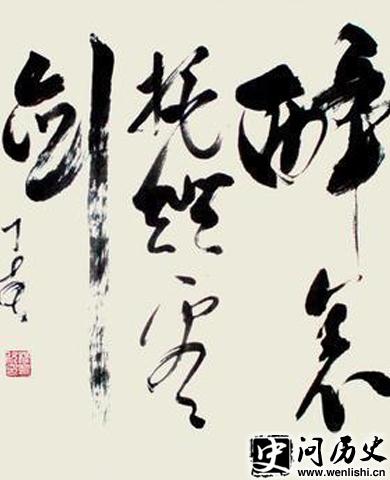 醉裏
挑燈看
剑
史 问历史
www.wenlishi.cn